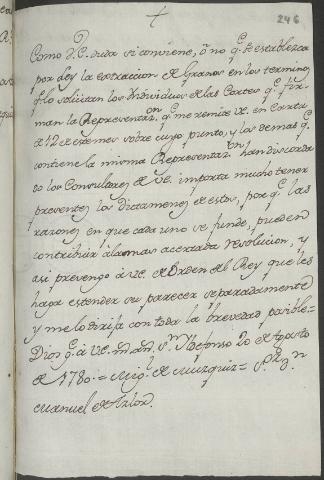 246
Como V.E. duda si conviene, o no q.e se establezca
por ley la extraccion de Granos en los terminos
q.e lo solicitan los Individuos de las Cartas q.e fir-
man la Representaz.on q.e me remite V.E. en Carta
de 12 de este mes sobre cuyo punto, y los demas q.e
contiene la misma Representaz.on han discorda
do los Consultares de V.E. importa mucho tener
presentes los dictamenes de estos, por q.e las
razones en que cada uno se funde, pueden
contribuir à la mas acertada resolucion, y
asi prevengo à V.E. de Orden del Rey que les
haga estender su parecer separadamente
y me lo dirija con toda la brevedad posible=
Dios g.e à V.E. m.s an.s S.n Ildefonso 20 de Agosto
de 1780.= Mig.l de Muzquiz= S.r D.n
Manuel de